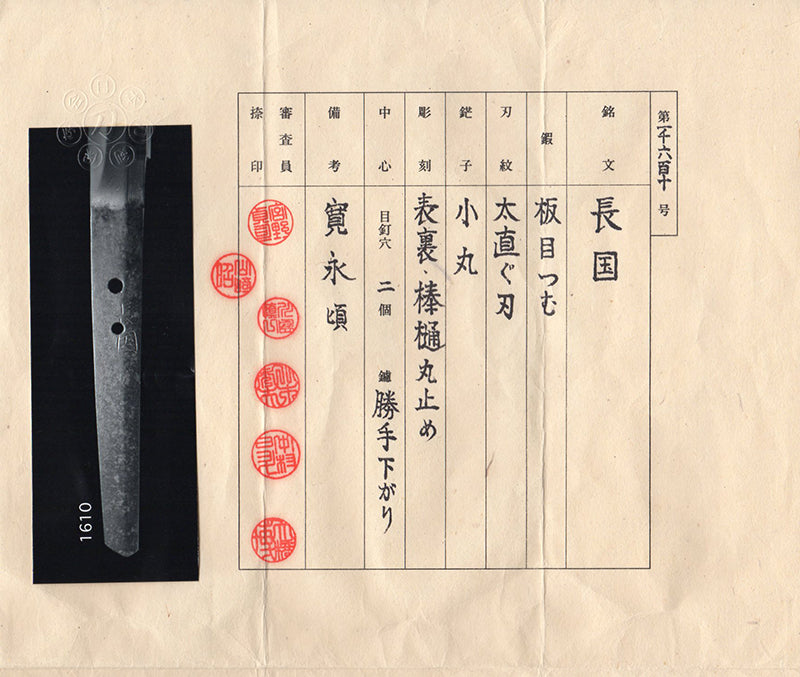 第一千六百十号
銘文
長国
鍜
板目つむ
刃紋
太直ぐ刃
鋩子
小丸
彫刻
表裏、棒樋丸止め
中心
目釘穴 二個 鑢 勝手下がり
備考
寛永頃
審査員
捺印
1610